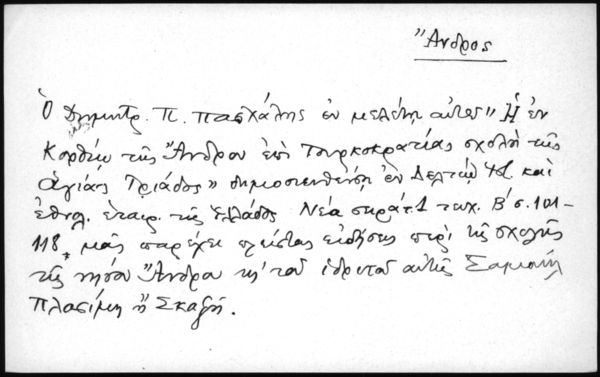 Ἄνδρος
Ὁ Δημητρ. Π. Πασχάλης ἐν μελέτῃ αὐτοῦ "Ἡ ἐν
Κορθίῳ τῆς Ἄνδρου ἐπὶ Τουρκοκρατίας σχολὴ τῆς
Ἁγίας Τριάδος" δημοσιευθείσῃ ἐν Δελτίῳ Ἱστ. καὶ
ἐθνολ. ἑταιρ. τῆς Ἑλλάδος Νέα σειρά τ. 1 τευχ. Β' σ. 101-
118, μᾶς παρέχει πλείστας εἰδήσεις περὶ τῆς σχολῆς
τῆς νήσου Ἄνδρου κ' τοῦ ἱδρυτοῦ αὐτῆς Σαμουὴλ
Πλασίμη ἢ Σκαζῆ.